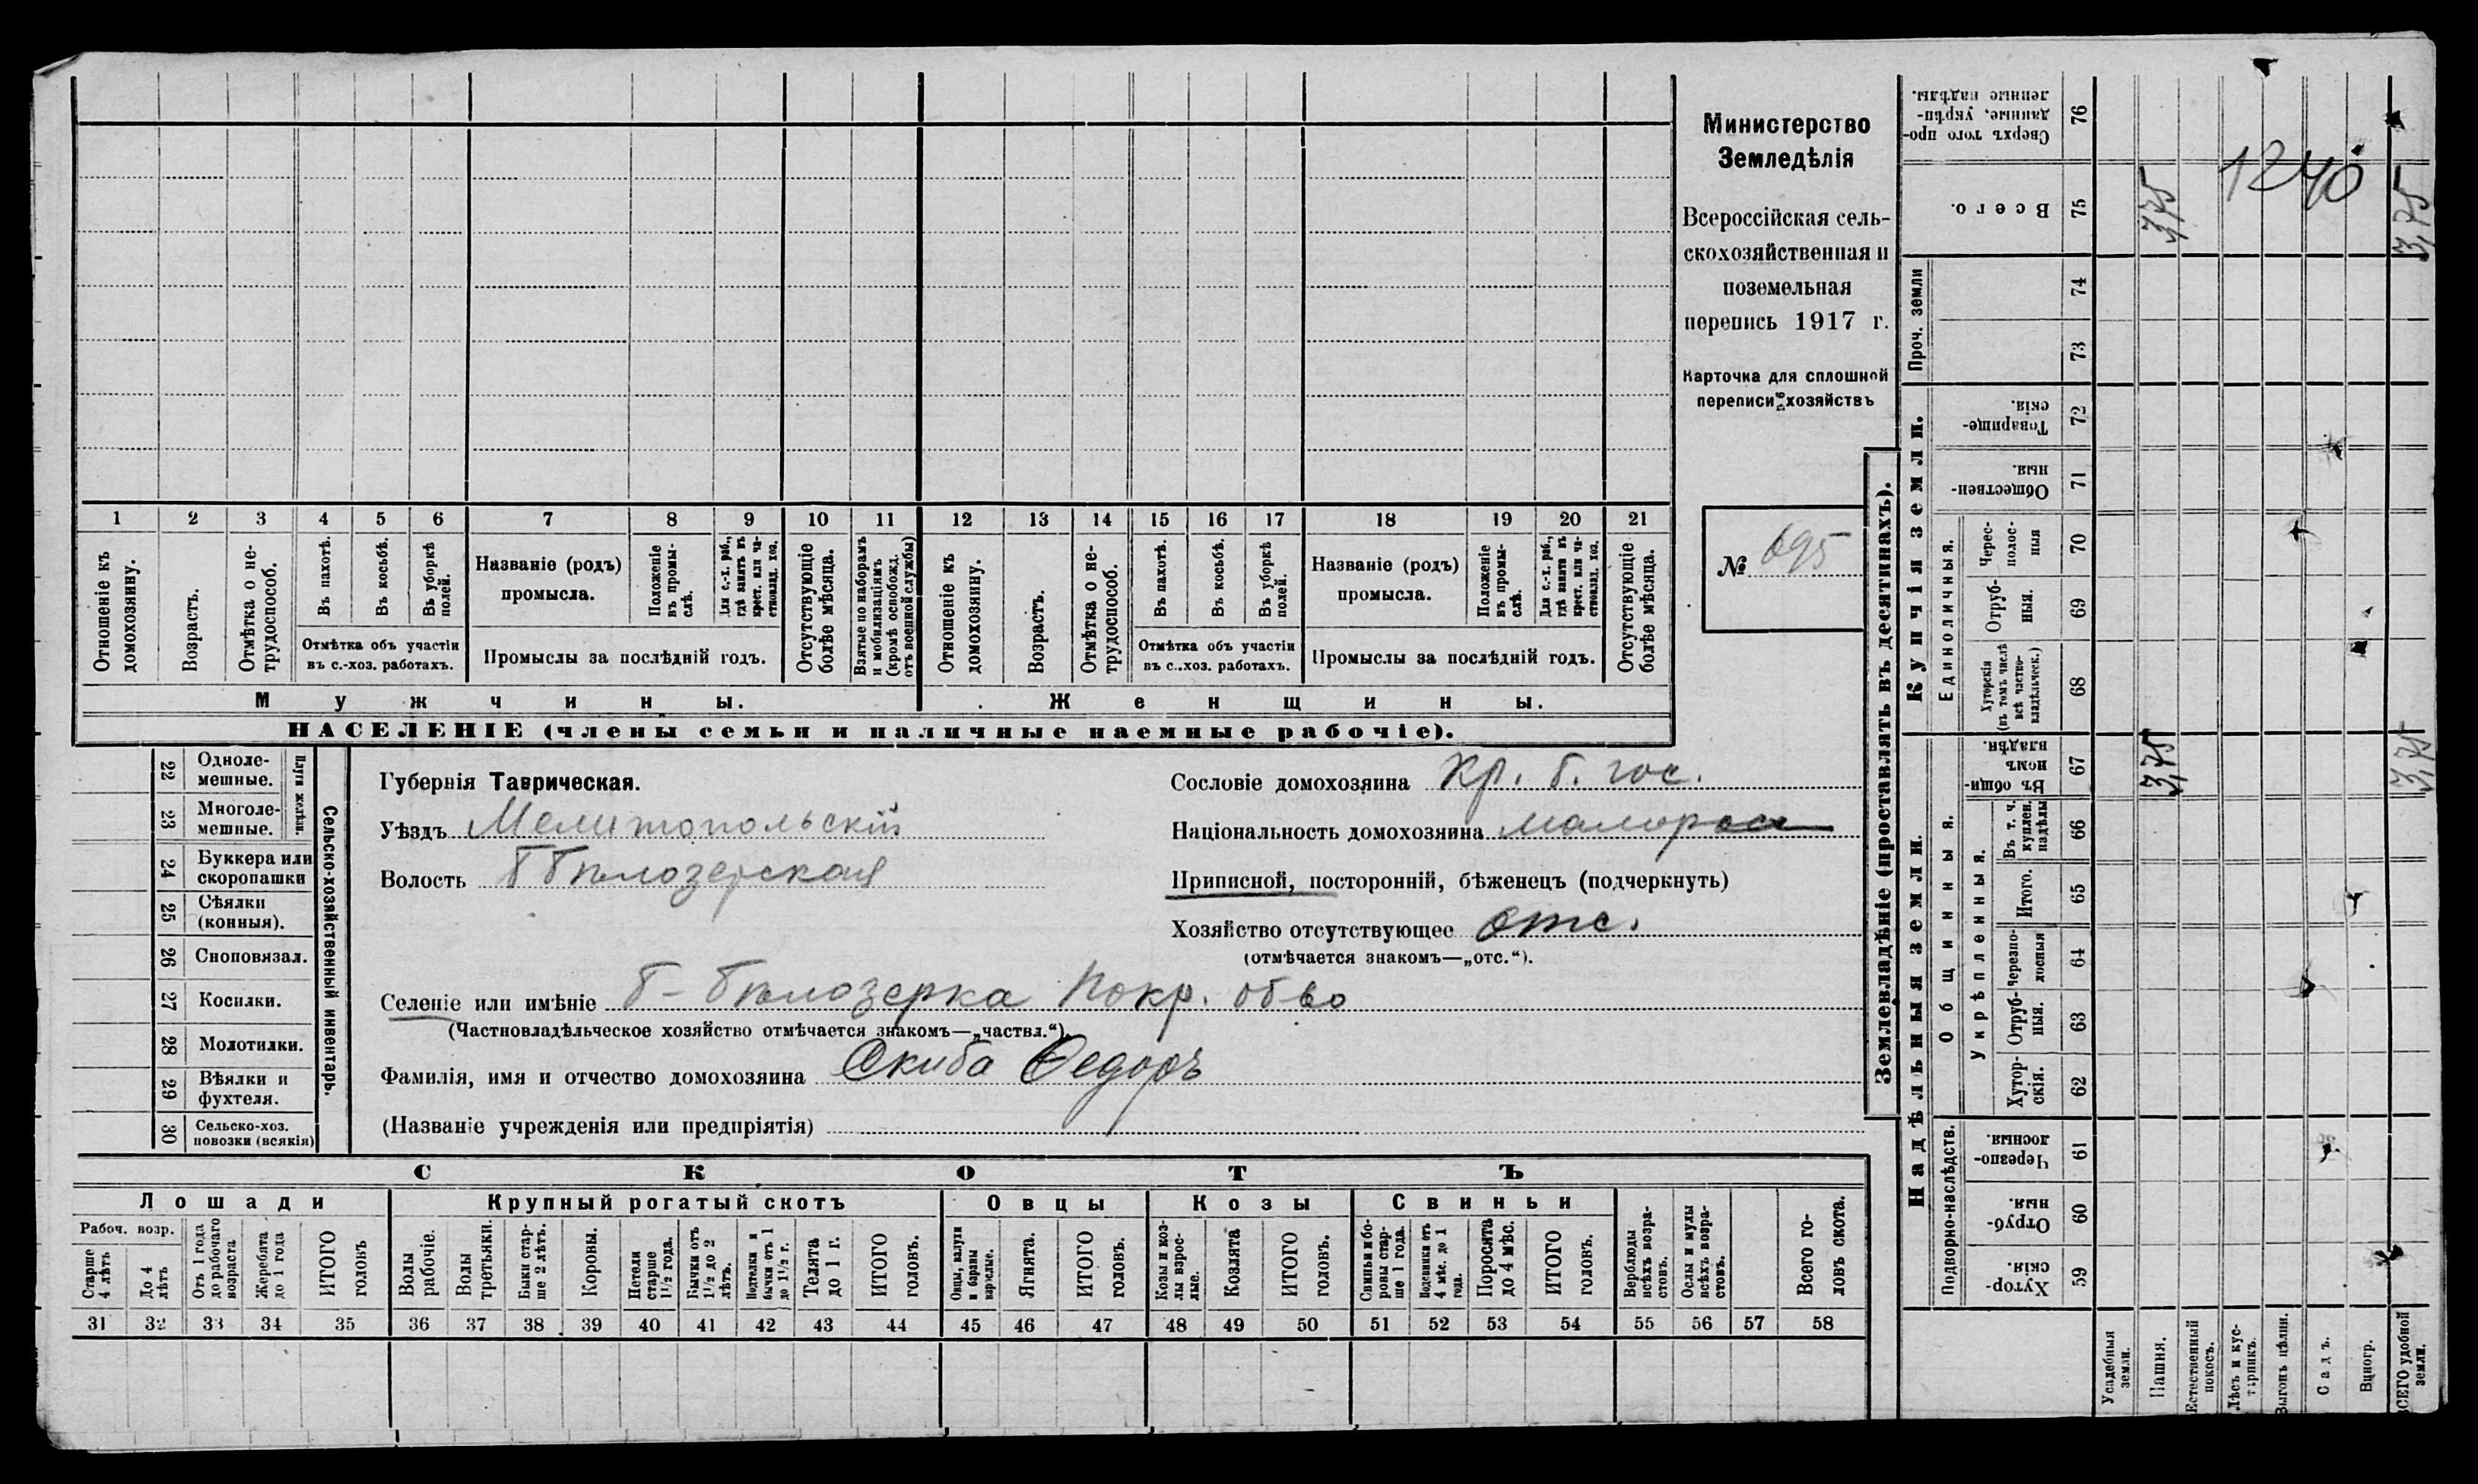 Министерство
Земледѣлія
Всероссійская сель-
скохозяйственная и
поземельная
перепись 1917 г.
Карточка для сплошной
переписи хозяйствъ
№ 695
1 2 3 4 5 6 7 8 9 10 11 12 13 14 15 16 17 18 19 20 21
Отношеніе къ домохозяину.
Возрастъ.
Отмѣтка о не-трудоспособ.
Въ пахотѣ.
Въ косьбѣ.
Въ уборкѣ полей.
Отмѣтка объ участіи
въ с.-хоз. работахъ.
Названіе (родъ)
промысла.
Положеніе въ промы-слѣ.
Для с.-х. раб., гдѣ занятъ въ крест. или ча-стновлад. хоз.
Промыслы за послѣдній годъ.
Отсутствующіе болѣе мѣсяца.
Взятые по наборамъ и мобилизаціямъ (кромѣ освобожд. отъ военной службы)
Отношеніе къ домохозяину.
Возрастъ.
Отмѣтка о не-трудоспособ.
Въ пахотѣ.
Въ косьбѣ.
Въ уборкѣ полей.
Отмѣтка объ участіи
въ с.-хоз. работахъ.
Названіе (родъ)
промысла.
Положеніе въ промы-слѣ.
Для с.-х. раб., гдѣ занята въ крест. или ча-стновлад. хоз.
Промыслы за послѣдній годъ.
Отсутствующіе болѣе мѣсяца.
Мужчины.
Женщины.
НАСЕЛЕНІЕ (члены семьи и наличные наемные рабочіе).
22 Одноле-мешные.
23 Многоле-мешные.
Плуги желѣзн.
24 Буккера или скоропашки
25 Сѣялки (конныя).
26 Сноповязал.
27 Косилки.
28 Молотилки.
29 Вѣялки и фухтеля.
30 Сельско-хоз. повозки (всякія)
Сельско-хозяйственный инвентарь.
Губернія Таврическая.
Уѣздъ Мелитопольскій
Волость Б Бѣлозерская
Сословіе домохозяина Кр. б. гос.
Національность домохозяина малоросс
Приписной, посторонній, бѣженецъ (подчеркнуть)
Хозяйство отсутствующее отс.
(отмѣчается знакомъ—„отс.“).
Селеніе или имѣніе Б-Бѣлозерка Покр. об во
(Частновладѣльческое хозяйство отмѣчается знакомъ—„частвл.“).
Фамилія, имя и отчество домохозяина Скиба Ѳедоръ
(Названіе учрежденія или предпріятія)
СКОТЪ
Лошади
Крупный рогатый скотъ
Овцы
Козы
Свиньи
Рабоч. возр.
Старше 4 лѣтъ
До 4 лѣтъ
Отъ 1 года до рабочаго возраста
Жеребята до 1 года
ИТОГО головъ
Волы рабочіе.
Волы третьяки.
Быки стар-ше 2 лѣтъ.
Коровы.
Нетели старше 1½ года.
Бычки отъ 1½ до 2 лѣтъ.
Подтелки и бычки отъ 1 до 1½ г.
Телята до 1 г.
ИТОГО головъ.
Овцы, валухи и бараны взрослые.
Ягнята.
ИТОГО головъ.
Козы и коз-лы взрос-лые.
Козлята
ИТОГО головъ.
Свиньи и бо-ровы стар-ше 1 года.
Подсвинки отъ 4 мѣс. до 1 года.
Поросята до 4 мѣс.
ИТОГО головъ.
Верблюды всѣхъ возра-стовъ.
Ослы и мулы всѣхъ возра-стовъ.
Всего го-ловъ скота.
31 32 33 34 35 36 37 38 39 40 41 42 43 44 45 46 47 48 49 50 51 52 53 54 55 56 57 58
Землевладѣніе (проставлять въ десятинахъ).
Надѣльныя земли.
Купчія земли.
Проч. земли
Подворно-наслѣдств.
Общинныя.
Укрѣпленныя.
Единоличныя.
Сверхъ того про-данные, укрѣп-ленные надѣлы. 76
Всего. 75
74
73
Товарище-скія. 72
Обществен-ныя. 71
Черес-полос-ныя 70
Отруб-ныя. 69
Хуторскія (въ томъ числѣ всѣ частно-владѣльческ.) 68
Въ общи-номъ владѣн. 67
Въ т. ч. куплен. надѣлы 66
Итого. 65
Черезпо-лосныя 64
Отруб-ныя. 63
Хутор-скія. 62
Черезпо-лосныя. 61
Отруб-ныя. 60
Хутор-скія. 59
Усадебныя земли.
Пашня.
Естественный покосъ.
Лѣсъ и кус-тарникъ.
Выгонъ цѣлин.
Садъ.
Виногр.
ВСЕГО удобной земли.
1240
3,75
3,75
3,75
3,75